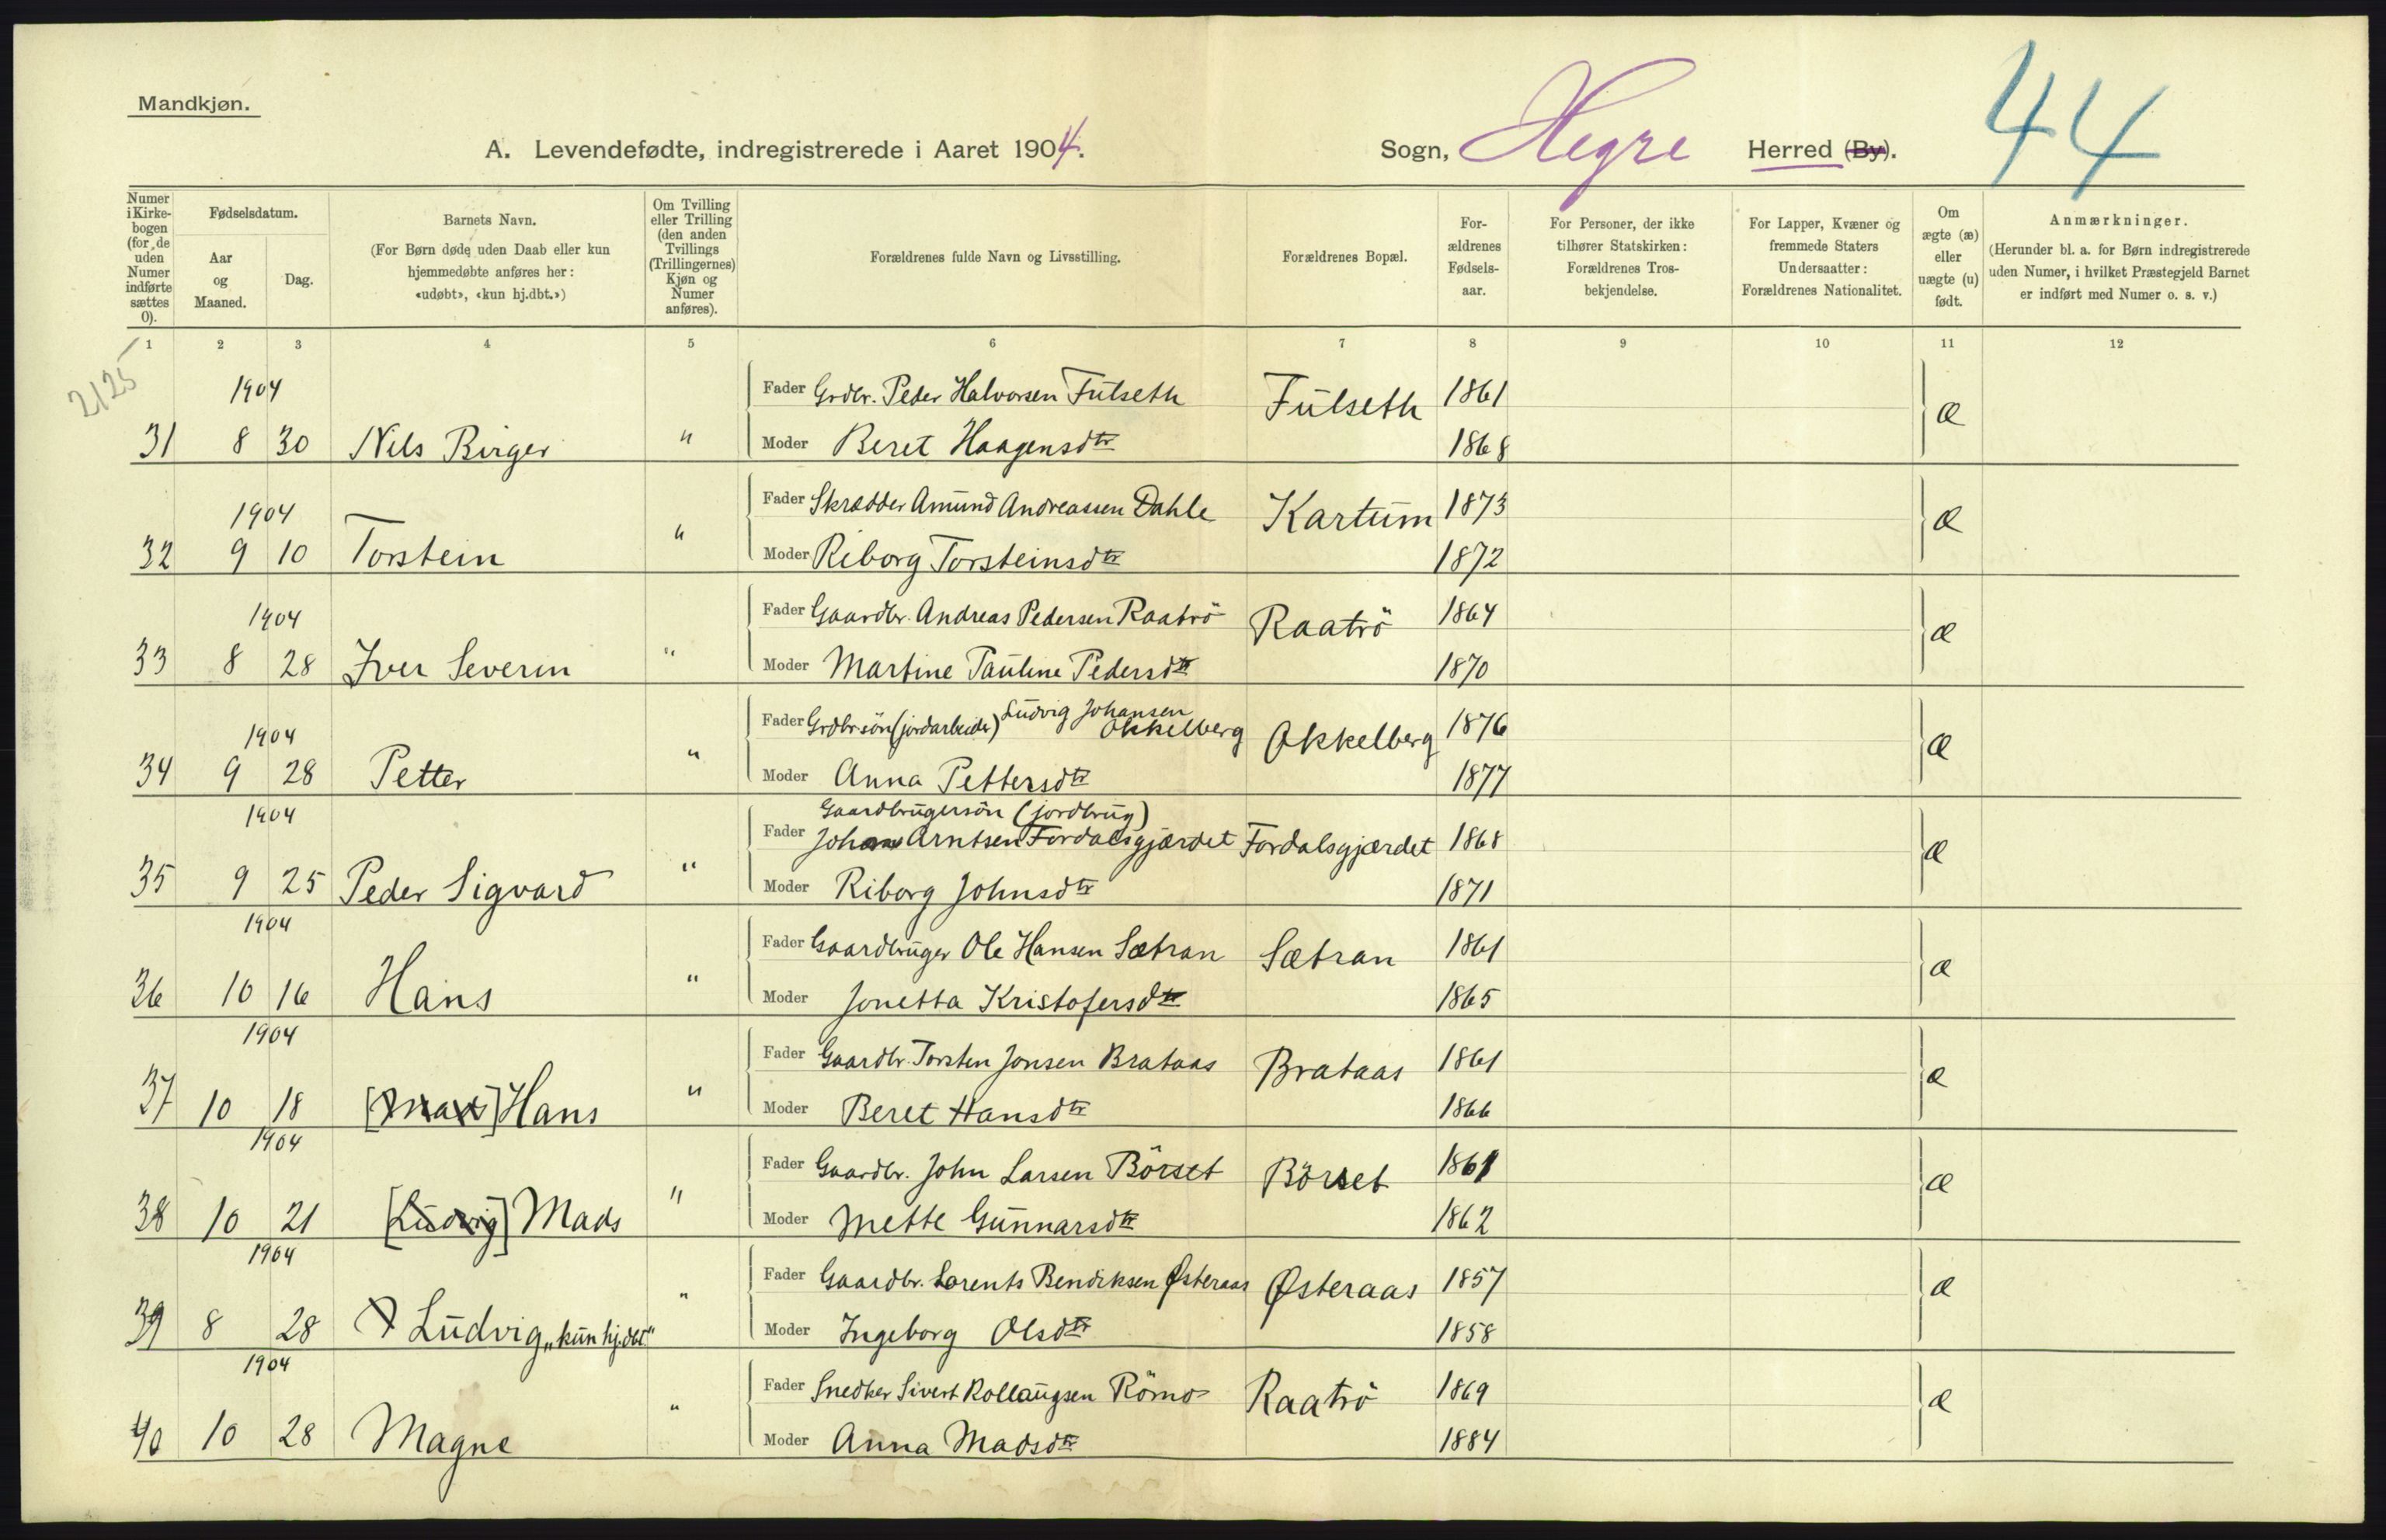 Mandkjøn.
A. Levendefødte, indregistrerede i Aaret 1904.
Sogn, Hegre Herred (By).
44
Numer i Kirkebogen (for de uden Numer indførte sættes 0).
Fødselsdatum.
Aar og Maaned.
Dag.
Barnets Navn.
(For Børn døde uden Daab eller kun hjemmedøbte anføres her: «udøbt», «kun hj.dbt.»)
Om Tvilling eller Trilling (den anden Tvillings (Trillingernes) Kjøn og Numer anføres).
Forældrenes fulde Navn og Livsstilling.
Forældrenes Bopæl.
Forældrenes Fødselsaar.
For Personer, der ikke tilhører Statskirken: Forældrenes Trosbekjendelse.
For Lapper, Kvæner og fremmede Staters Undersaatter: Forældrenes Nationalitet.
Om ægte (æ) eller uægte (u) født.
Anmærkninger.
(Herunder bl. a. for Børn indregistrerede uden Numer, i hvilket Præstegjeld Barnet er indført med Numer o. s. v.)
1 2 3 4 5 6 7 8 9 10 11 12
2125
1904 Fader Grdbr. Peder Halvorsen Fulseth Fulseth 1861 æ
31 8 30 Nils Birger " Moder Beret Haagensdtr 1868
1904 Fader Skrædder Amund Andreassen Dahle Kartum 1873 æ
32 9 10 Torstein " Moder Riborg Torsteinsdtr 1872
1904 Fader Gaardbr. Andreas Pedersen Raatrö Raatrö 1864 æ
33 8 28 Iver Severin " Moder Martine Pauline Pedersdtr 1870
1904 Fader Grdbrsön (jordarbeide) Ludvig Johansen Okkelberg Okkelberg 1876 æ
34 9 28 Petter " Moder Anna Pettersdtr 1877
1904 Gaardbrugersön (jordbrug)
Fader Johan Arntsen Fordalsgjærdet Fordalsgjærdet 1868 æ
35 9 25 Peder Sigvard " Moder Riborg Johnsdtr 1871
1904 Fader Gaardbruger Ole Hansen Sætran Sætran 1861 æ
36 10 16 Hans " Moder Jonetta Kristofersdtr 1865
1904 Fader Gaardbr. Torsten Jonsen Brataas Brataas 1861 æ
37 10 18 [Mads] Hans " Moder Beret Hansdtr 1866
1904 Fader Gaardbr. John Larsen Börset Börset 1861 æ
38 10 21 [Ludvig] Mads " Moder Mette Gunnarsdtr 1862
1904 Fader Gaardbr. Lorents Bendiksen Østeraas Østeraas 1857 æ
39 8 28 Ludvig „kun hj.dbt." " Moder Ingeborg Olsdtr 1858
1904 Fader Snedker Sivert Rollaugsen Römo Raatrö 1869 æ
40 10 28 Magne " Moder Anna Madsdtr 1884